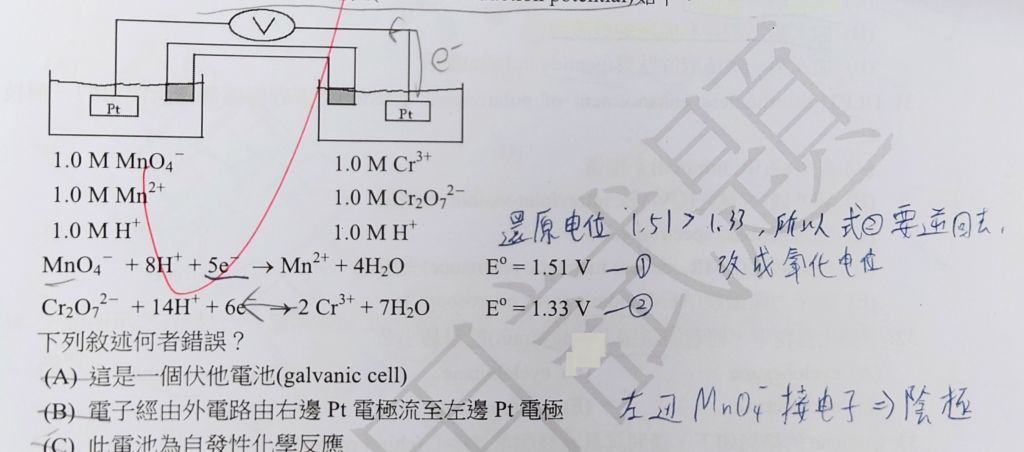 uction potential)如下：
V
e⁻
Pt
Pt
1.0 M MnO₄⁻
1.0 M Cr³⁺
1.0 M Mn²⁺
1.0 M Cr₂O₇²⁻
1.0 M H⁺
1.0 M H⁺
還原电位 1.51 > 1.33，所以 式② 要逆回去，
改成氧化电位
MnO₄⁻ + 8H⁺ + 5e⁻ → Mn²⁺ + 4H₂O E° = 1.51 V —①
Cr₂O₇²⁻ + 14H⁺ + 6e⁻ → 2 Cr³⁺ + 7H₂O E° = 1.33 V —②
下列敘述何者錯誤？
(A) 這是一個伏他電池(galvanic cell)
(B) 電子經由外電路由右邊 Pt 電極流至左邊 Pt 電極
左边 MnO₄⁻ 接电子 ⇒ 陰極
(C) 此電池為自發性化學反應
試題